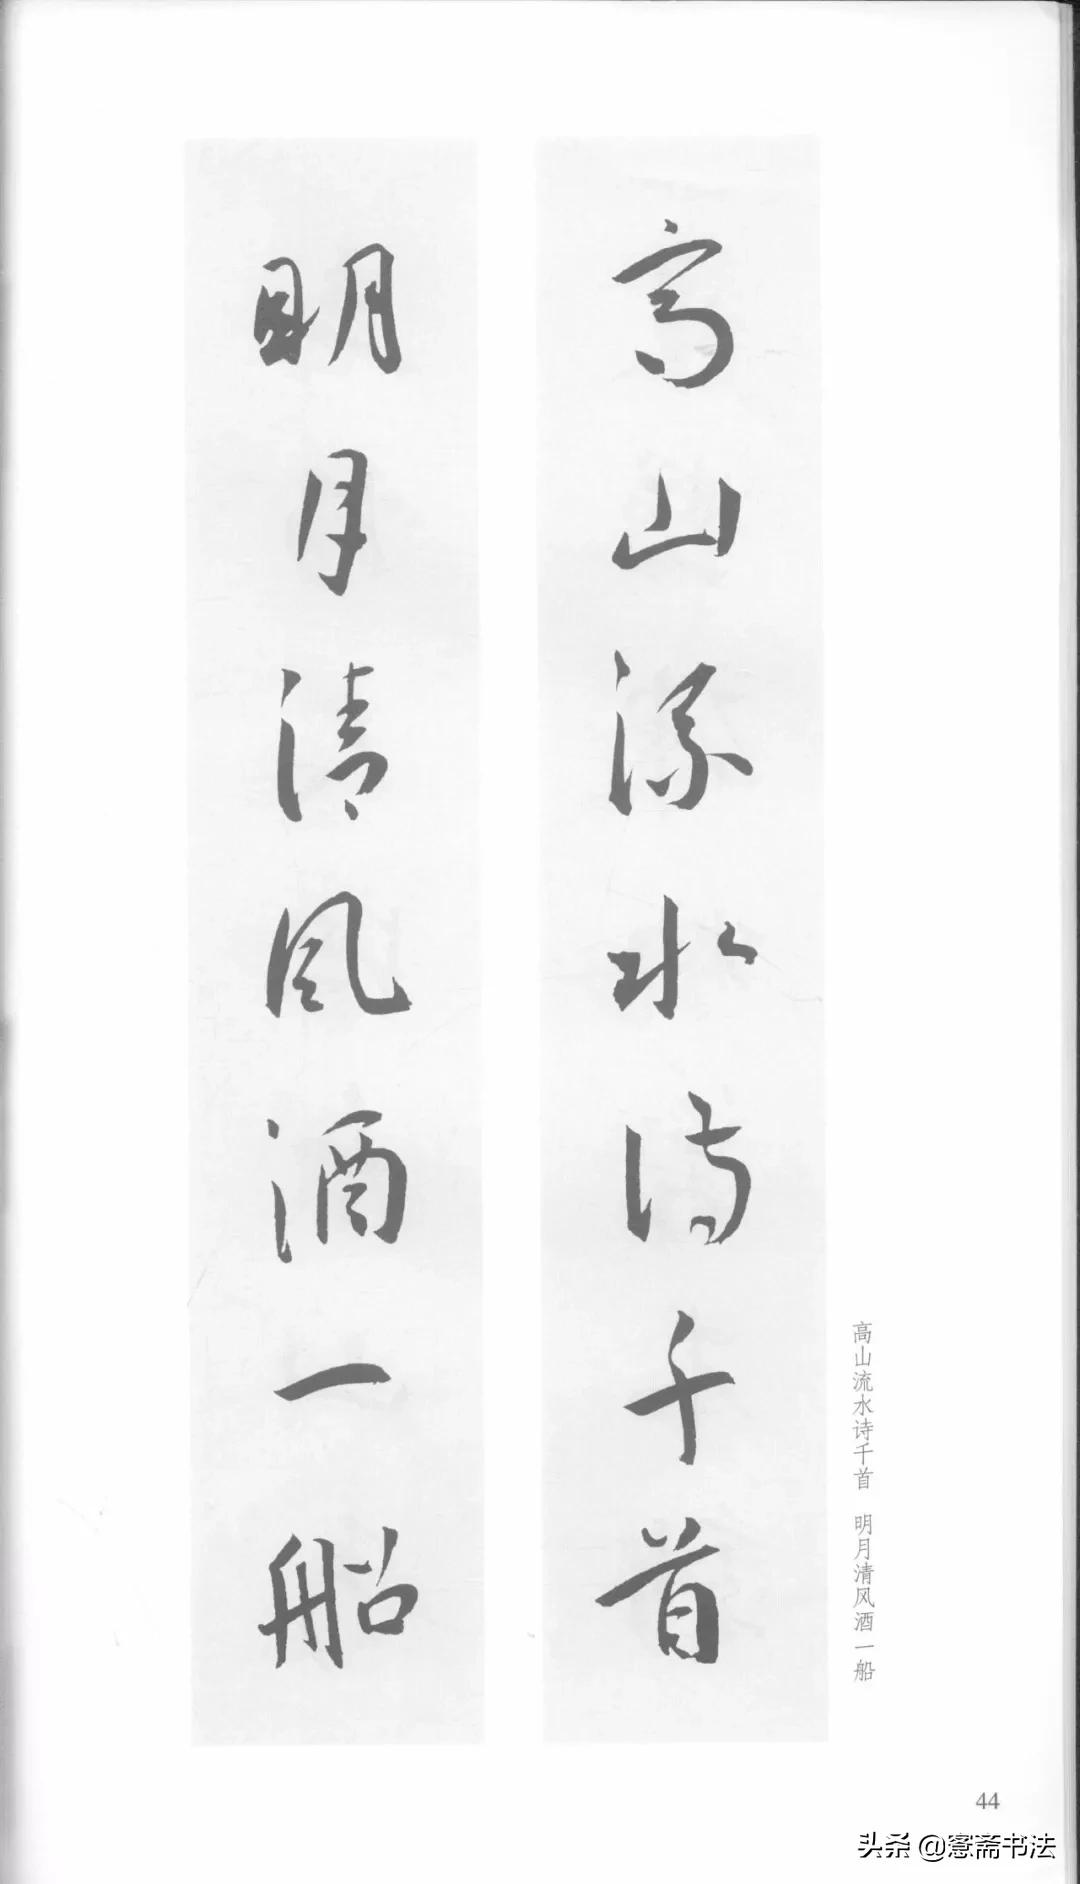 高山流水诗千首
明月清风酒一船
高山流水诗千首 明月清风酒一船
44
头条 @窓斋书法